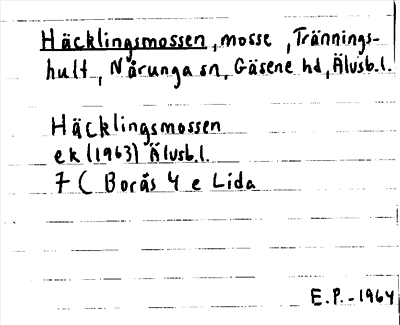 Häcklingsmossen, mosse, Trännings-
hult, Nårunga sn, Gäsene hd, Älvsb.l.
Häcklingsmossen
ek (1963) Älvsb.l.
7C Borås 4 e Lida
E.P. - 1964